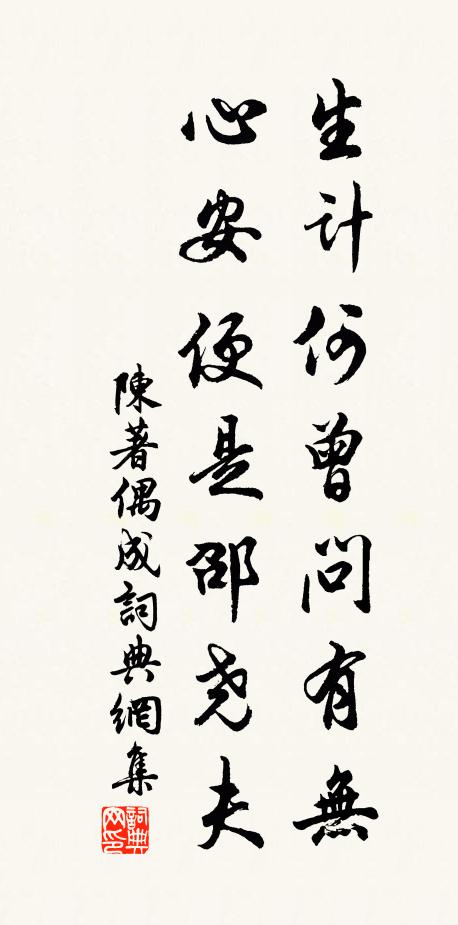 生計何曾問有無
心安便是邵尧夫
陳著偶成詞典網集
詞典网印